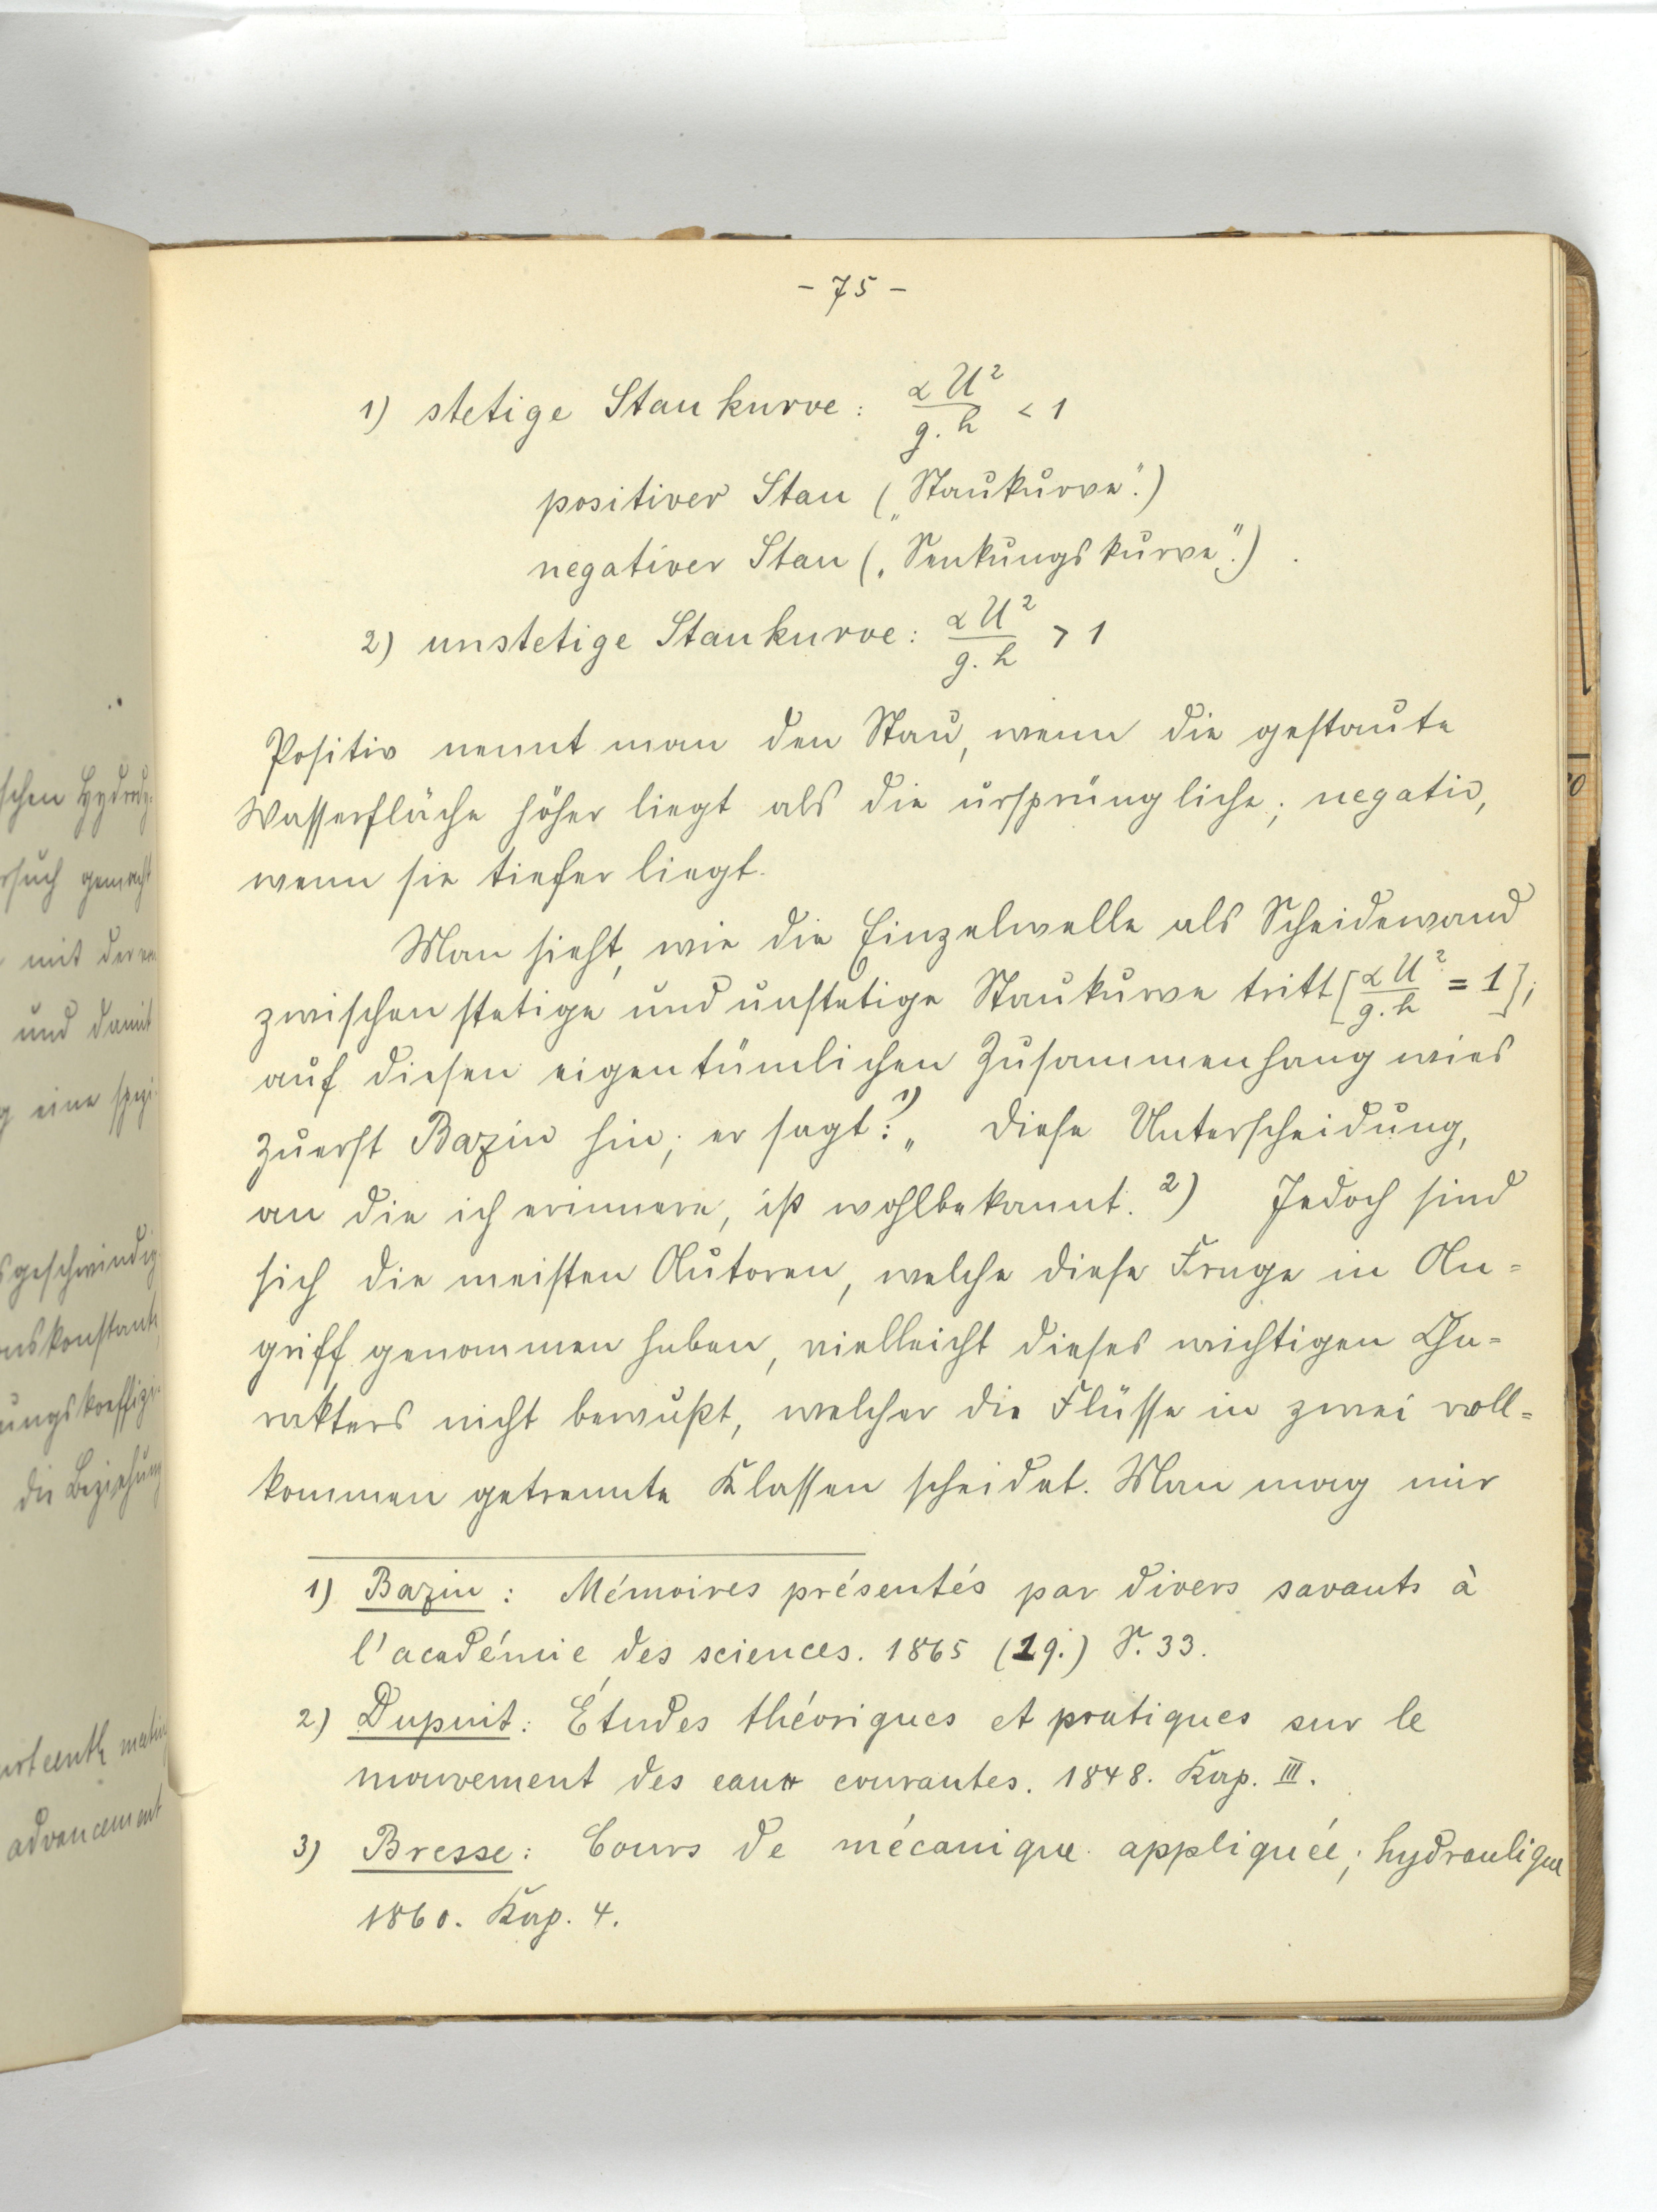 - 75 -
1) stetige Staukurve: α U² / g. h < 1
positiver Stau („Staukurve“.)
negativer Stau („Senkungskurve“.)
2) unstetige Staukurve: α U² / g. h > 1
Positiv nennt man den Stau, wenn die gestaute
Wasserfläche höher liegt als die ursprüngliche; negativ,
wenn sie tiefer liegt.
Man sieht, wie die Einzelwelle als Scheidewand
zwischen stetige und unstetige Staukurve tritt [α U² / g. h = 1];
auf diesen eigentümlichen Zusammenhang wies
zuerst Bazin hin; er sagt:¹⁾ „Diese Unterscheidung,
an die ich erinnere, ist wohlbekannt.²⁾ Jedoch sind
sich die meisten Autoren, welche diese Frage in An=
griff genommen haben, vielleicht dieses wichtigen Cha=
rakters nicht bewußt, welcher die Flüsse in zwei voll=
kommen getrennte Klassen scheidet. Man mag mir
1) Bazin: Mémoires présentés par divers savants à
l'académie des sciences. 1865 (19.) S. 33.
2) Dupuit: Études théoriques et pratiques sur le
mouvement des eaux courantes. 1848. Kap. III.
3) Bresse: Cours de mécanique appliquée; hydraulique
1860. Kap. 4.
schen Hydrody-
rsuch gemacht
mit der
und damit
eine spezi-
sgeschwindig-
nskonstante,
ungskoeffizi-
die Beziehung
advancement